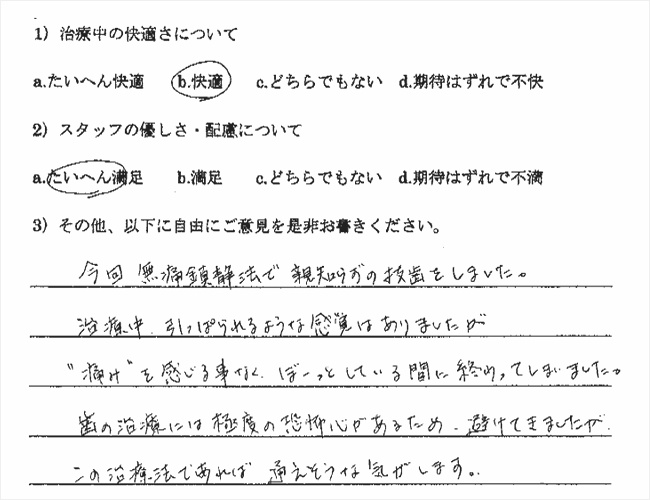 1) 治療中の快適さについて
a.たいへん快適 b.快適 c.どちらでもない d.期待はずれで不快
2) スタッフの優しさ・配慮について
a.たいへん満足 b.満足 c.どちらでもない d.期待はずれで不満
3) その他、以下に自由にご意見を是非お書きください。
今回 無痛鎮静法で 親知らずの抜歯をしました。
治療中、引っぱられるような感覚はありましたが
"痛み"を感じる事なく、ぼーっとしている間に終わってしまいました。
歯の治療には極度の恐怖心があるため、避けてきましたが、
この治療法であれば 通えそうな気がします。